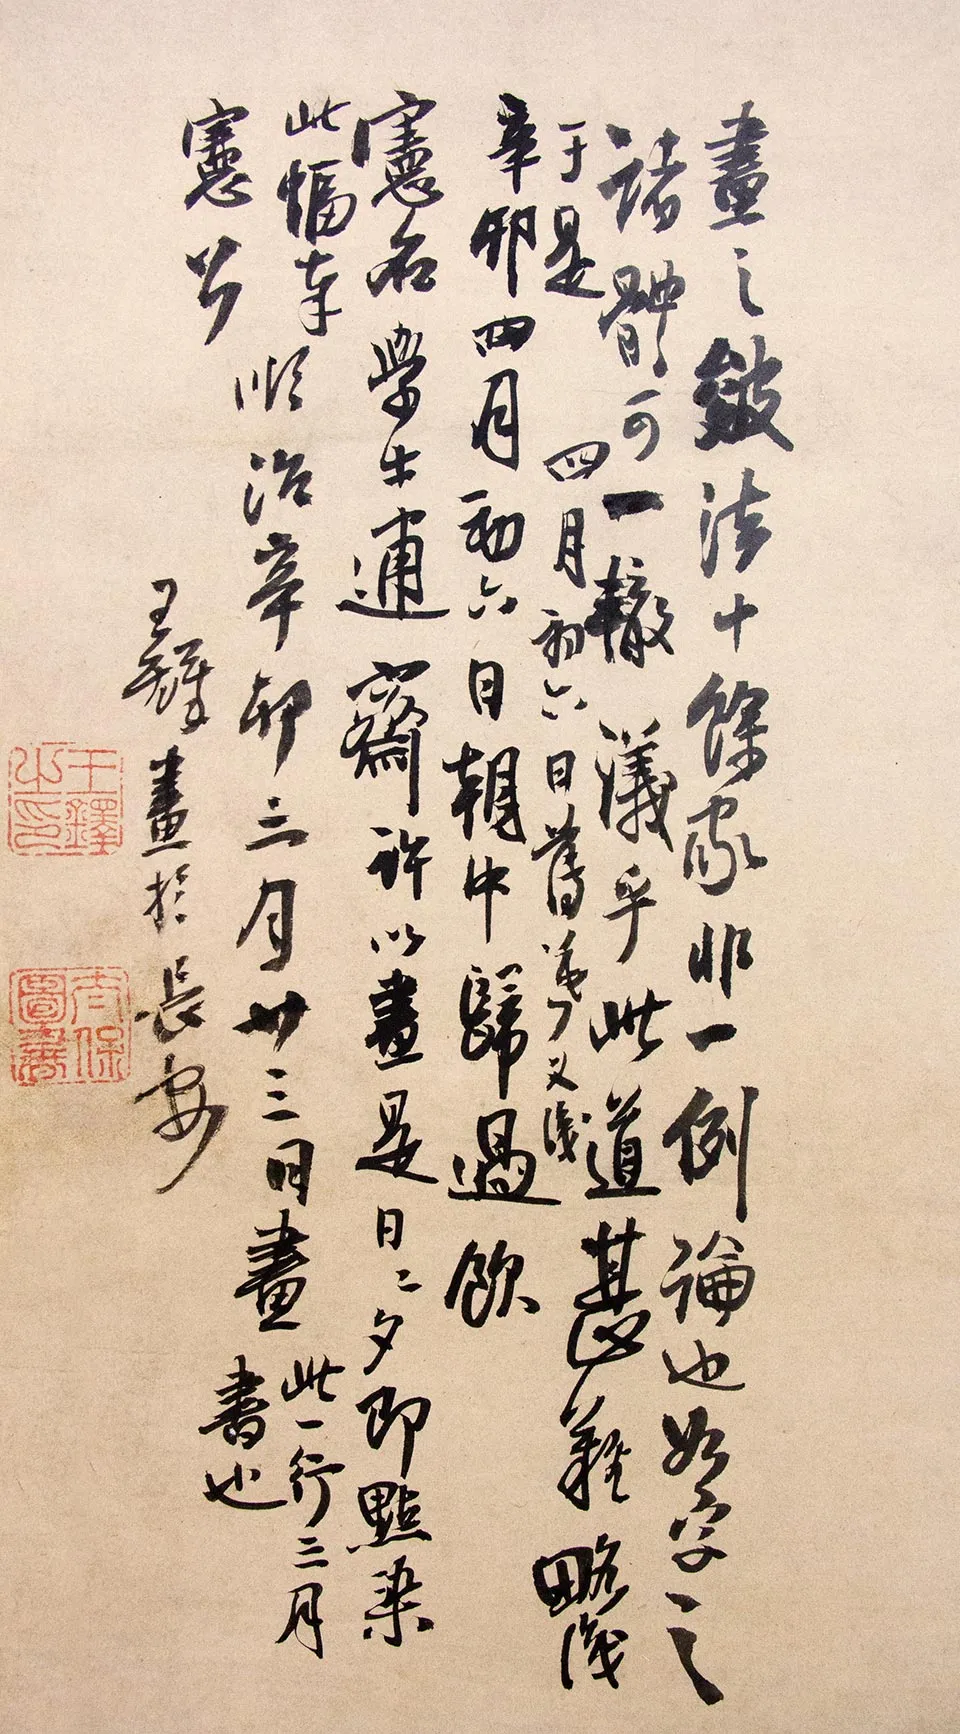 畫之皴法十餘家非一例論也如字之
諸體可一轍議乎此道甚難略識
于是四月初六日舊又識
辛卯四月初六日朝中歸過飲
憲石學生逋齋許以畫是日二夕即點染
此幅奉
憲公
順治辛卯三月廿三日畫
此一行三月
書也
王鐸畫於長安
王鐸之印
太保圖書